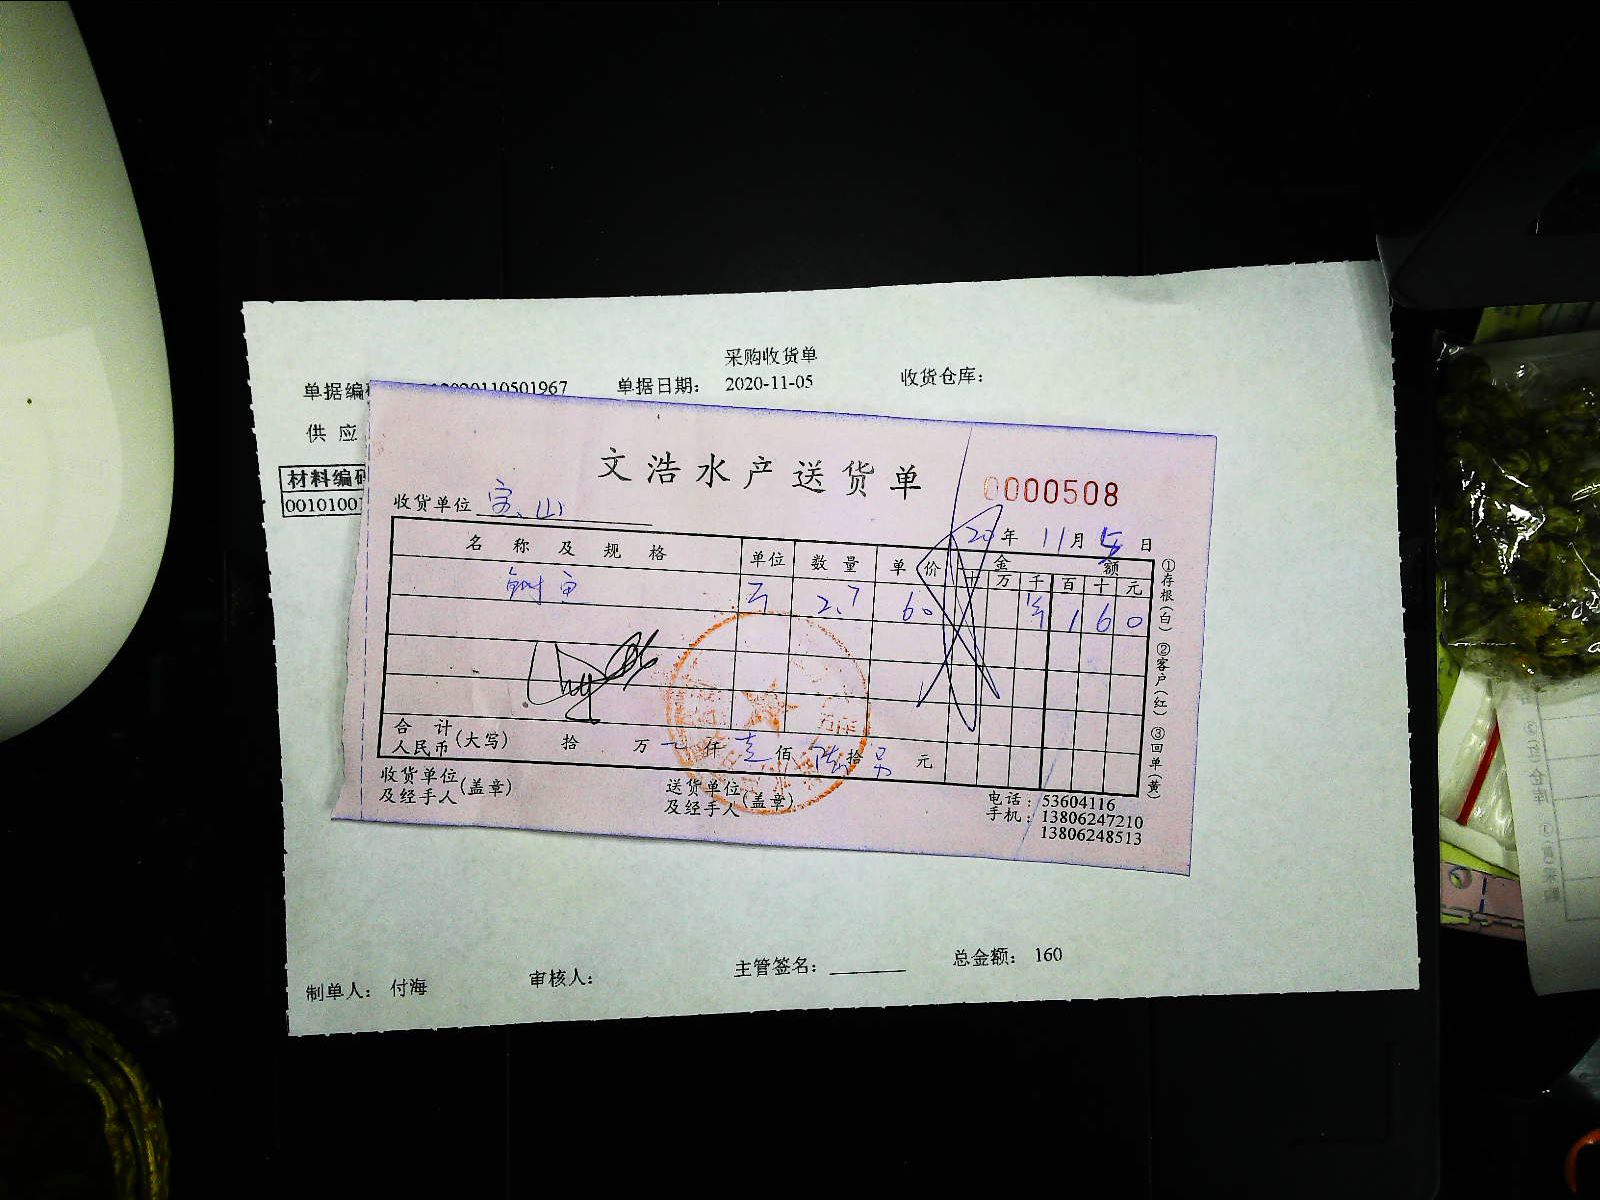 采购收货单
单据编 2020110501967 单据日期： 2020-11-05 收货仓库：
供 应
材料编码
0010100
文浩水产送货单
0000508
收货单位 宝山
20年 11月 5日
名称及规格 单位 数量 单价 金额
十 万 千 百 十 元
2.7 60 ¥ 1 6 0
合计人民币(大写) 拾 万 仟 壹 佰 陆 拾 另 元
收货单位及经手人(盖章) 送货单位及经手人(盖章)
电话：53604116
手机：13806247210
13806248513
①存根(白) ②客户(红) ③回单(黄)
制单人： 付海 审核人： 主管签名： 总金额： 160